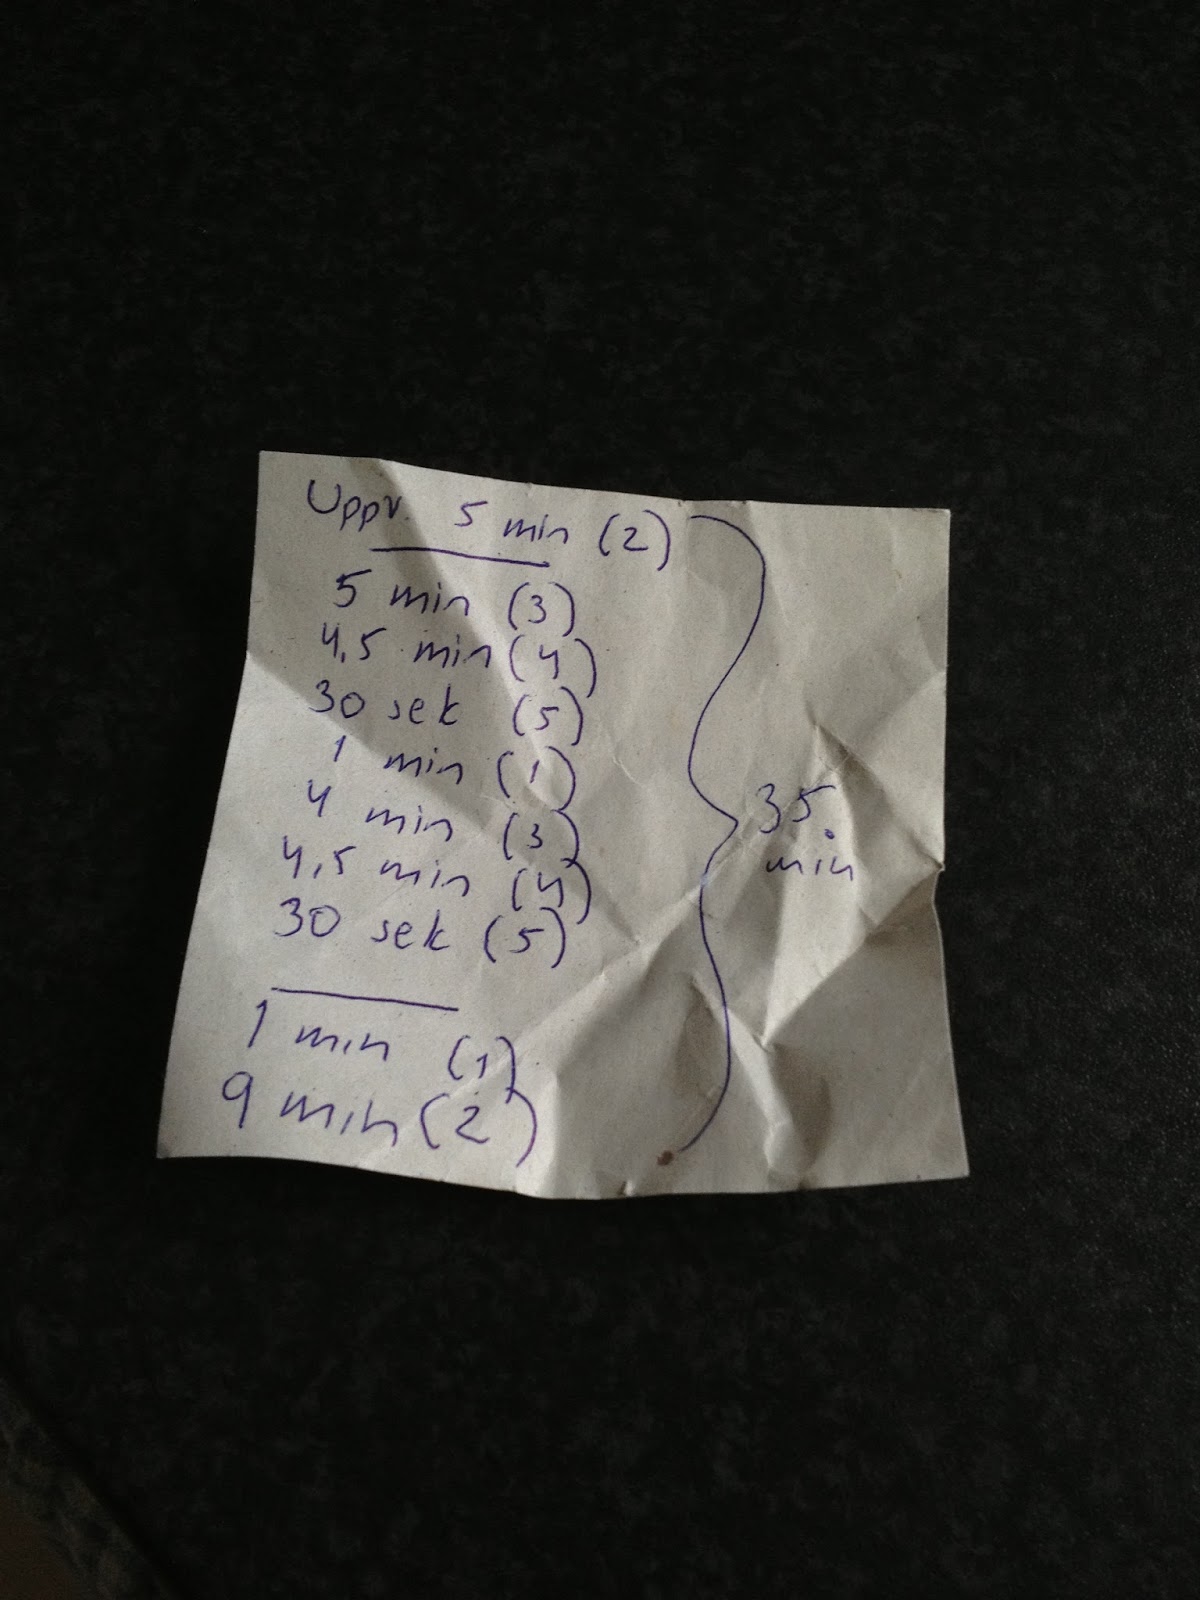 Uppv. 5 min (2)
5 min (3)
4,5 min (4)
30 sek (5)
1 min (1)
4 min (3)
4,5 min (4)
30 sek (5)
1 min (1)
9 min (2)
35 min